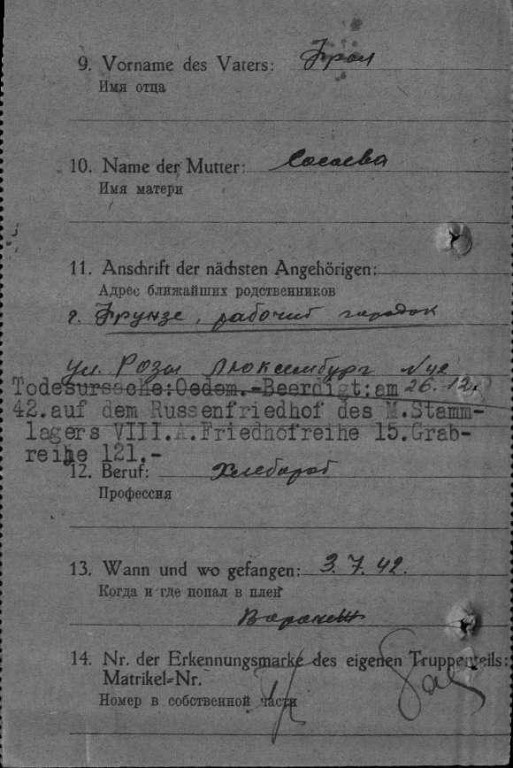 9. Vorname des Vaters: Фрол
Имя отца
10. Name der Mutter: Сасаева
Имя матери
11. Anschrift der nächsten Angehörigen:
Адрес ближайших родственников
г. Фрунзе, рабочий городок
ул. Розы Люксембург №42
Todesursache:Oedem.-Beerdigt:am 26.12.
42.auf dem Russenfriedhof des M.Stamm-
lagers VIII.A.Friedhofreihe 15.Grab-
reihe 121.-
12. Beruf: Хлебороб
Профессия
13. Wann und wo gefangen: 3.7.42.
Когда и где попал в плен
Воронеж
14. Nr. der Erkennungsmarke des eigenen Truppenteils:
Matrikel-Nr.
Номер в собственной части